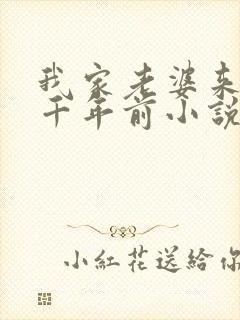 我家老婆来
千年前小說
小紅花送給你